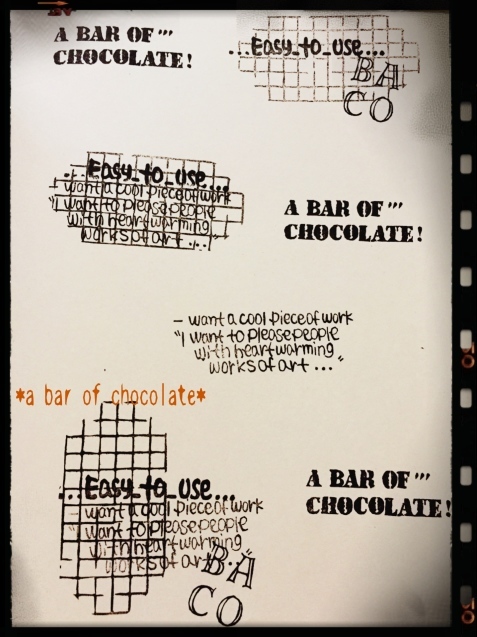 A BAR OF '''
CHOCOLATE!
...Easy_to_use...
BA
CO
...Easy_to_use...
– want a cool piece of work
"I want to please people
with heartwarming
works of art ..."
A BAR OF '''
CHOCOLATE!
– want a cool piece of work
"I want to please people
with heartwarming
works of art ..."
*a bar of chocolate*
...Easy_to_use...
want a cool piece of work
want to please people
with heartwarming
works of art
BA
CO
A BAR OF '''
CHOCOLATE!